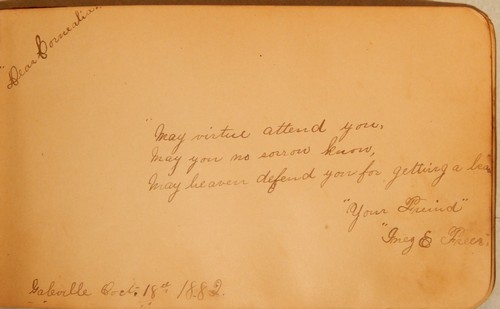 "Dear Cornelia
"May virtue attend you,
May you no sorrow know,
May heaven defend you for getting a
"Your Freind"
"Inez E
Galeville Oct. 18th 1882.